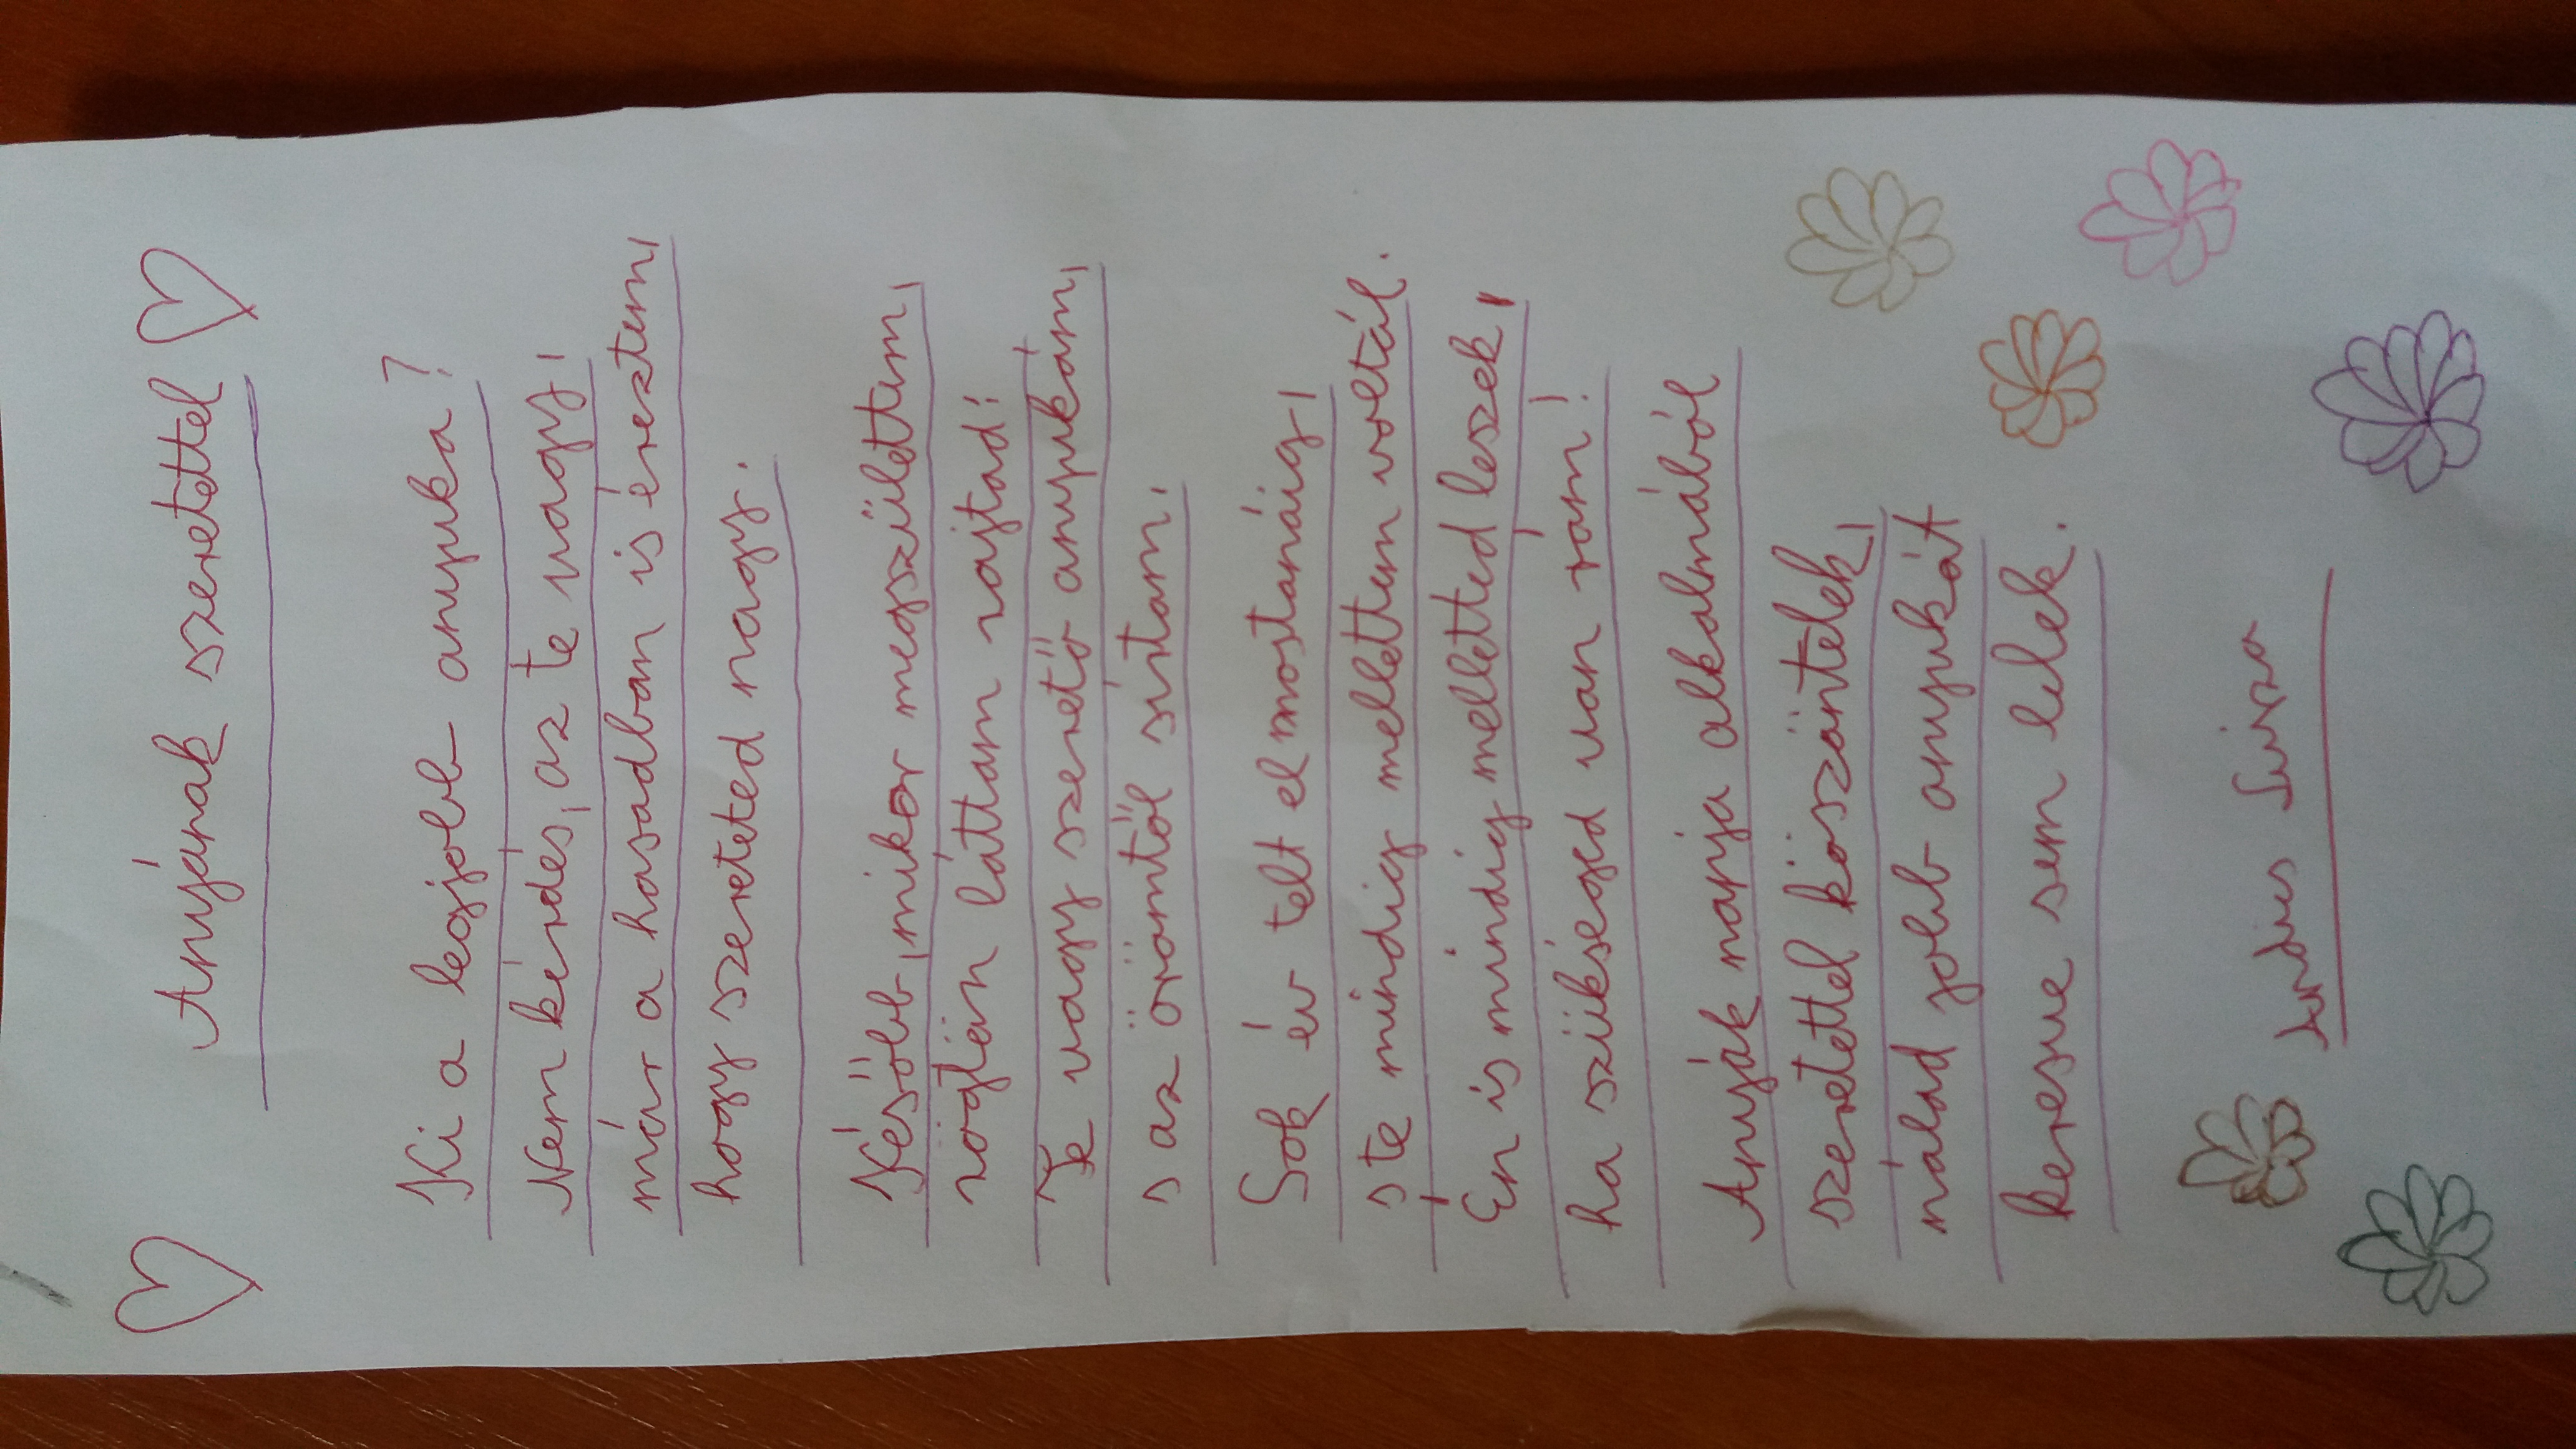 Anyának szeretettel
Ki a legjobb anyuka?
Nem kérdés, az te vagy,
már a hasadban is éreztem,
hogy szereted nagy.
Később, mikor megszülettem,
röglön láttam rajtad:
Te vagy szerető anyukám,
s az örömtől sírtam.
Sok év telt el mostanáig,
s te mindig mellettem voltál.
Én is mindig melletted leszek,
ha szükséged van rám!
Anyák napja alkalmából
szeretettel köszöntelek,
nálad jobb anyukát
keresve sem lelek.
Luiza